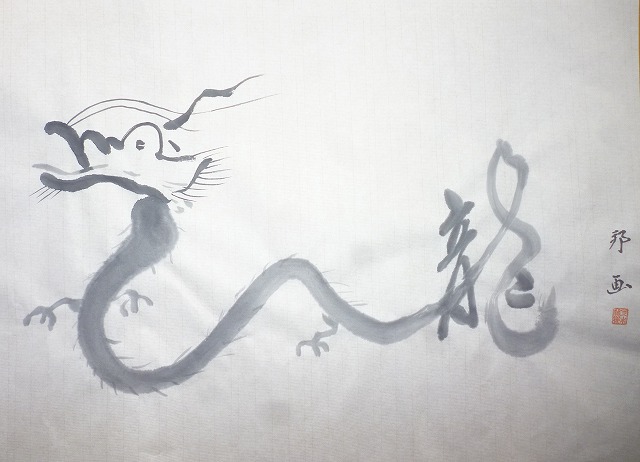 龍
邦画